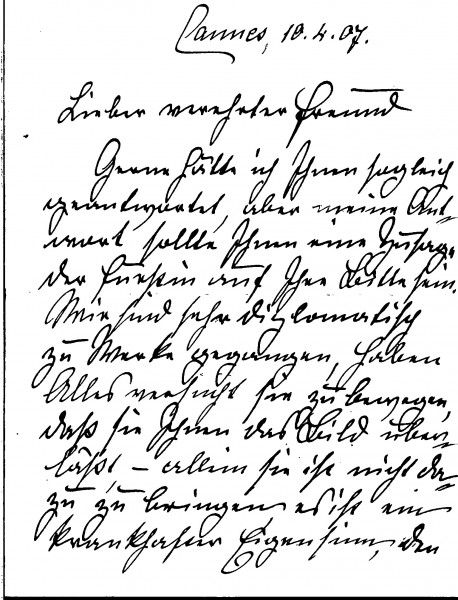 Cannes, 10.4.07.
Lieber verehrter Freund
Gerne hätte ich Ihnen sogleich
geantwortet, aber meine Ant-
wort sollte Ihnen eine Zusage
der Fürstin auf Ihre Bitte sein.
Wir sind sehr diplomatisch
zu Werke gegangen, haben
Alles versucht sie zu bewegen,
daß sie Ihnen das Bild über-
läßt, – allein sie ist nicht da-
zu zu bringen es ist ein
krankhafter Eigensinn, den